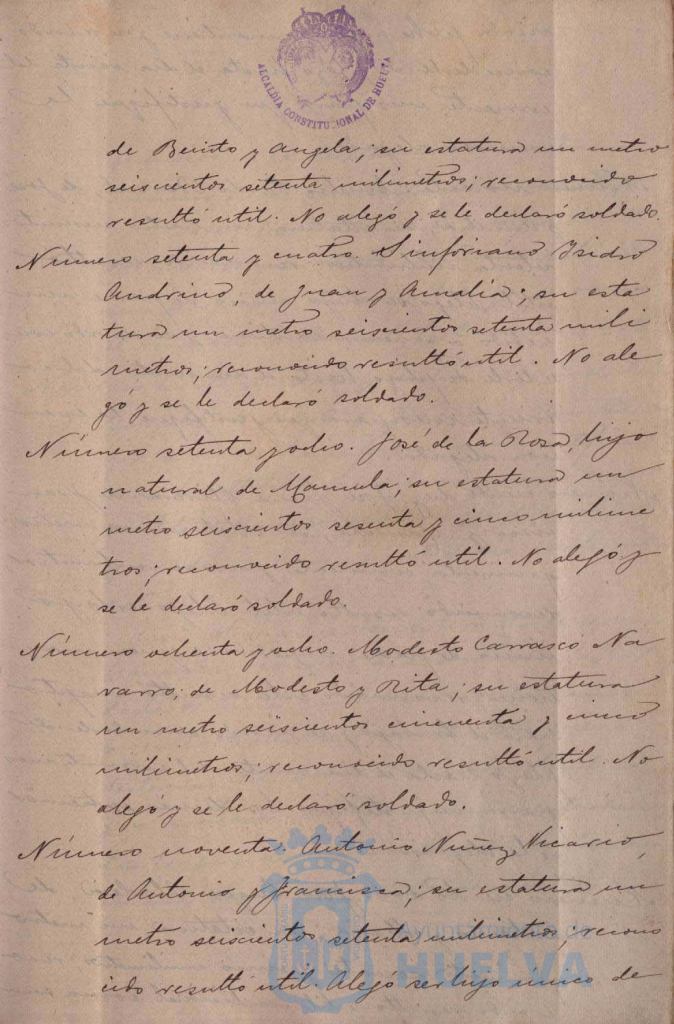 ALCALDIA CONSTITUCIONAL DE HUELVA
de Benito y Angela; su estatura un metro
seiscientos setenta milimetros; reconocido
resultó util. No alegó y se le declaró soldado.
Número setenta y cuatro. Sinforiano Isidro
Andrino, de Juan y Amalia; su esta
tura un metro seiscientos setenta mili
metros; reconocido resultó util. No ale
gó y se le declaró soldado.
Número setenta y ocho. José de la Rosa, hijo
natural de Manuela; su estatura un
metro seiscientos sesenta y cinco milime
tros; reconocido resultó util. No alegó y
se le declaró soldado.
Número ochenta y ocho. Modesto Carrasco Na
varro; de Modesto y Rita; su estatura
un metro seiscientos cincuenta y cinco
milimetros; reconocido resultó util. No
alegó y se le declaró soldado.
Número noventa. Antonio Nuñez Vicario,
de Antonio y Francisca; su estatura un
metro seiscientos setenta milimetros; recono
AYUNTAMIENTO DE
HUELVA
cido resultó util. Alegó ser hijo unico de